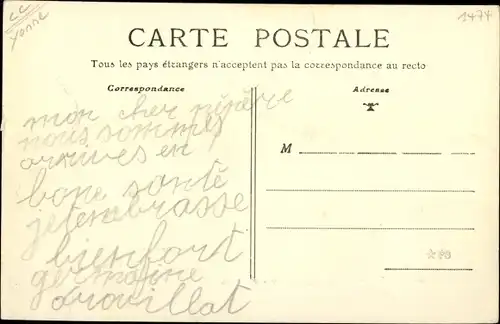 CC
Yonne
1474
CARTE POSTALE
Tous les pays étrangers n'acceptent pas la correspondance au recto
Correspondance
Adresse
mon cher pépère
nous sommes
arrives en
bone santé
jetembrasse
bien fort
germaine
drouillat
M